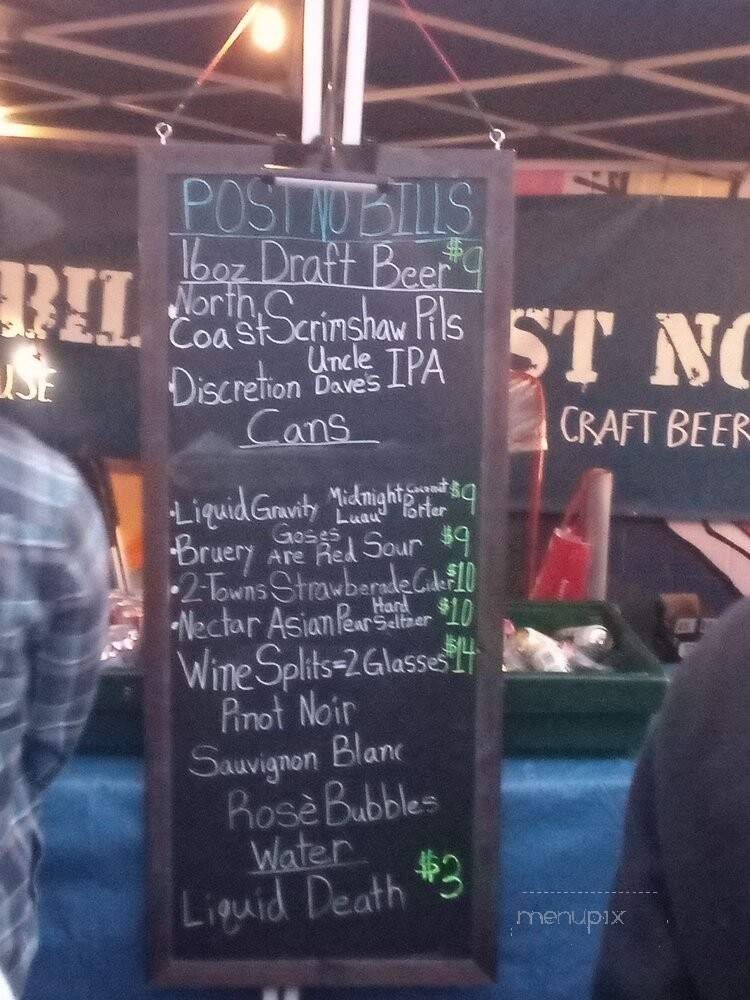 POST NO BILLS
16oz Draft Beer $9
• North Coast Scrimshaw Pils
• Discretion Uncle Dave's IPA
Cans
• Liquid Gravity Midnight Luau Coconut Porter $9
• Bruery Goses Are Red Sour $9
• 2-Towns Strawberade Cider $10
• Nectar Asian Pear Hard Seltzer $10
Wine Splits=2 Glasses $14
Pinot Noir
Sauvignon Blanc
Rosè Bubbles
Water
Liquid Death $3
BIL
USE
ST NO
CRAFT BEER
menupix